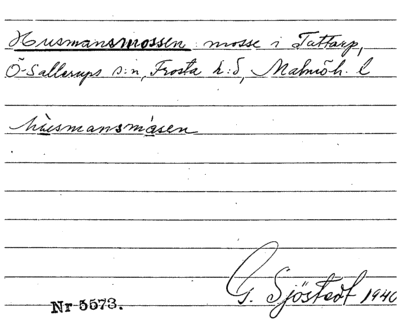 Husmansmossen mosse i Tattarp,
Ö-Sallerups s:n, Frosta h:d, Malmöh. l
hùsmansmåsen
G. Sjöstedt 1940
Nr 5573.